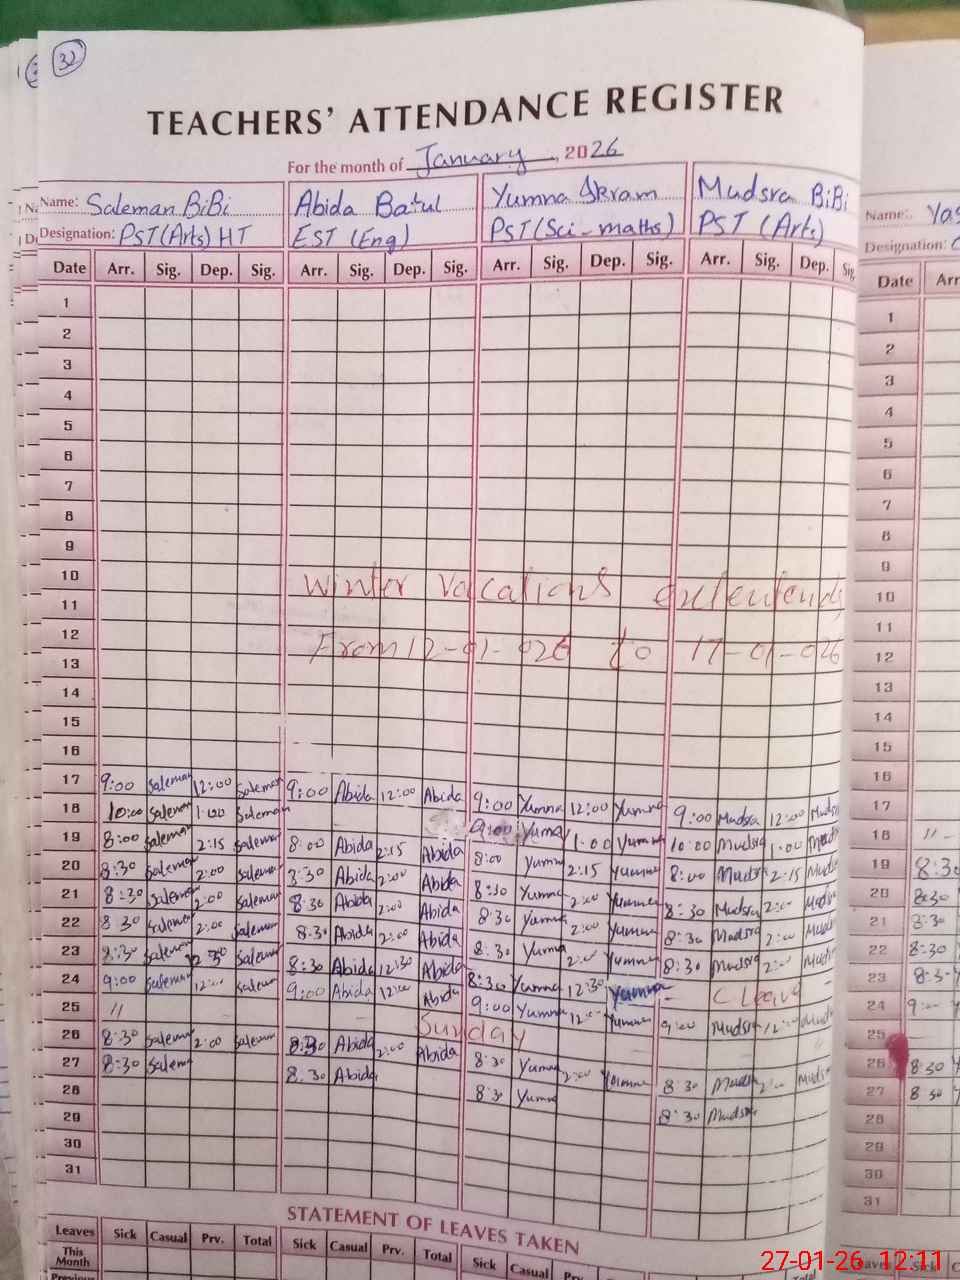 32
TEACHERS' ATTENDANCE REGISTER
For the month of January, 2026
Name: Saleman BiBi Abida Batul Yumna Ikram Mudsra BiBi
Designation: PST(Arts) HT EST (Eng) PST(Sci-maths) PST (Arts)
Date Arr. Sig. Dep. Sig. Arr. Sig. Dep. Sig. Arr. Sig. Dep. Sig. Arr. Sig. Dep. Sig.
1
2
3
4
5
6
7
8
9
10 Winter Vacations extentends
11
12 From 12-01-026 to 17-01-026
13
14
15
16
17 9:00 Saleman 12:00 Saleman 9:00 Abida 12:00 Abida 9:00 Yumna 12:00 Yumna 9:00 Mudsra 12:00
18 10:00 Saleman 1:00 Saleman 9:00 Yumna 1:00 Yumna 10:00 Mudsra 1:00
19 8:00 Saleman 2:15 Saleman 8:00 Abida 2:15 Abida 8:00 Yumna 2:15 Yumna 8:00 Mudsra 2:15
20 8:30 Saleman 2:00 Saleman 8:30 Abida 2:00 Abida 8:30 Yumna 2:00 Yumna 8:30 Mudsra 2:00
21 8:30 Saleman 2:00 Saleman 8:30 Abida 2:00 Abida 8:30 Yumna 2:00 Yumna 8:30 Mudsra 2:00
22 8:30 Saleman 2:00 Saleman 8:30 Abida 2:00 Abida 8:30 Yumna 2:00 Yumna 8:30 Mudsra 2:00
23 8:30 Saleman 12:30 Saleman 8:30 Abida 12:30 Abida 8:30 Yumna 12:30 Yumna - C Leave -
24 9:00 Saleman 12:00 Saleman 9:00 Abida 12:00 Abida 9:00 Yumna 12:00 Yumna 9:00 Mudsra 12:00
25 // Sunday
26 8:30 Saleman 2:00 Saleman 8:30 Abida 2:00 Abida 8:30 Yumna 2:00 Yumna 8:30 Mudsra 2:00
27 8:30 Saleman 8:30 Abida 8:30 Yumna 8:30 Mudsra
28
29
30
31
STATEMENT OF LEAVES TAKEN
Leaves Sick Casual Prv. Total Sick Casual Prv. Total Sick Casual
This Month
Name:
Designation:
Date Arr
1
2
3
4
5
6
7
8
9
10
11
12
13
14
15
16
17
18 // -
19 8:30
20 8:30
21 8:30
22 8:30
23 8:3
24 9:
25
26 8:30
27 8:30
28
29
30
31
27-01-26 12:11